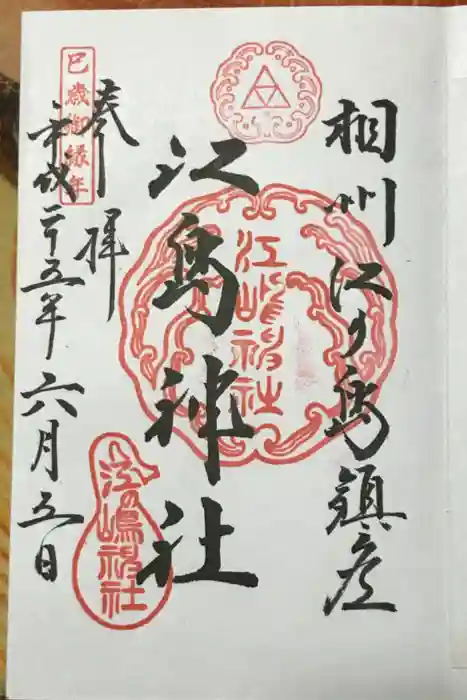 相州江ノ島鎮座
江島神社
江嶋神社
奉拝
平成二十五年六月五日
巳歳御縁年
江の嶋神社